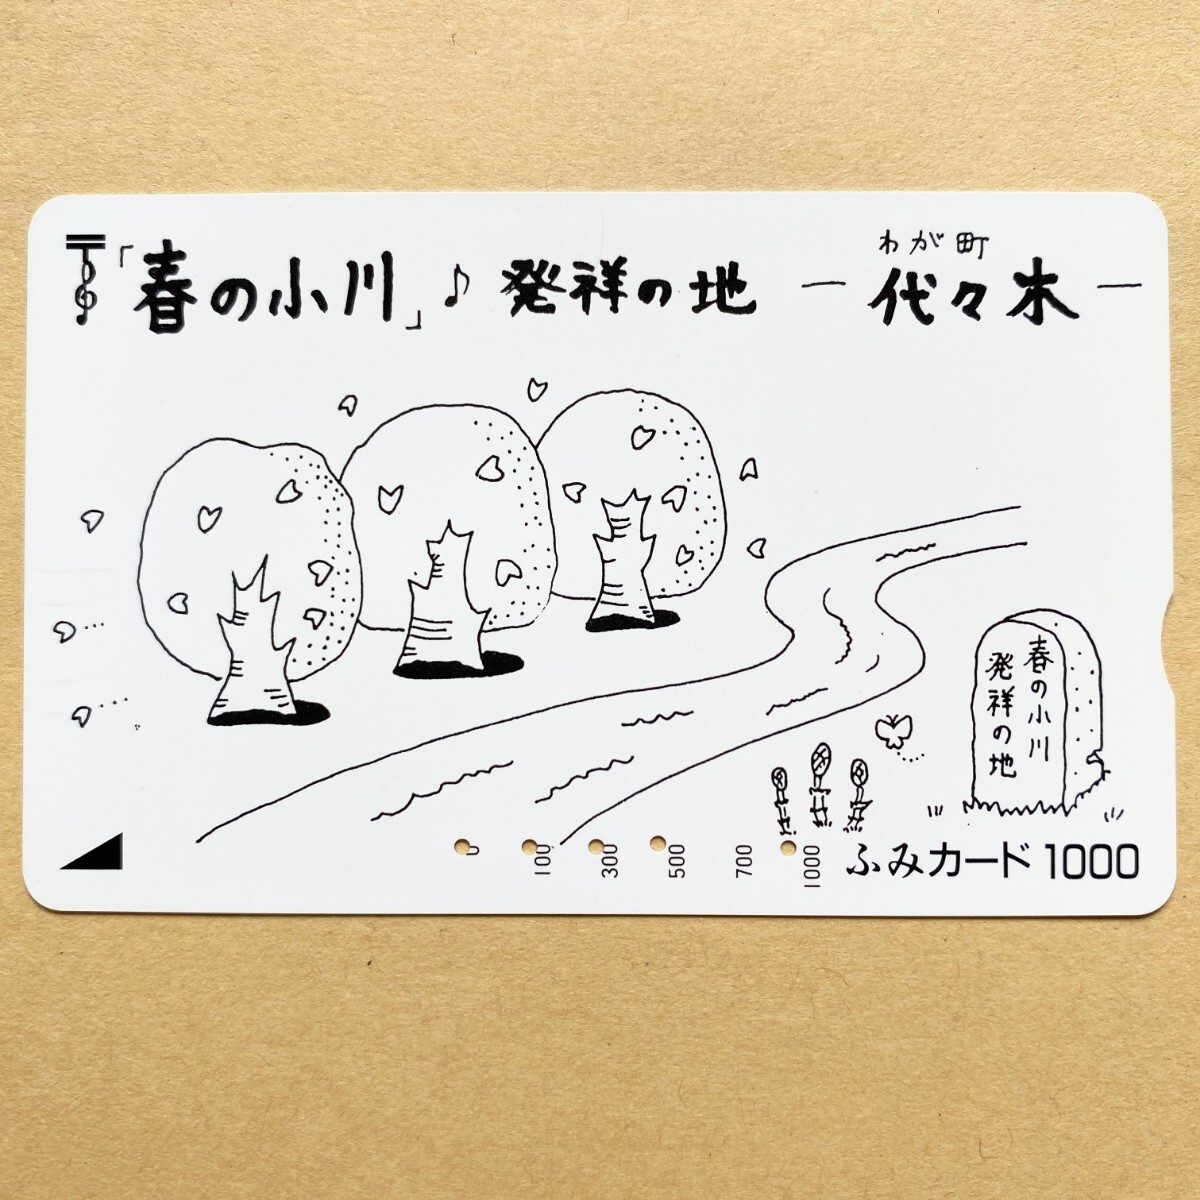 〒「春の小川」♪ 発祥の地 ― わが町 代々木 ―
春の小川
発祥の地
0 100 300 500 700 1000
ふみカード 1000